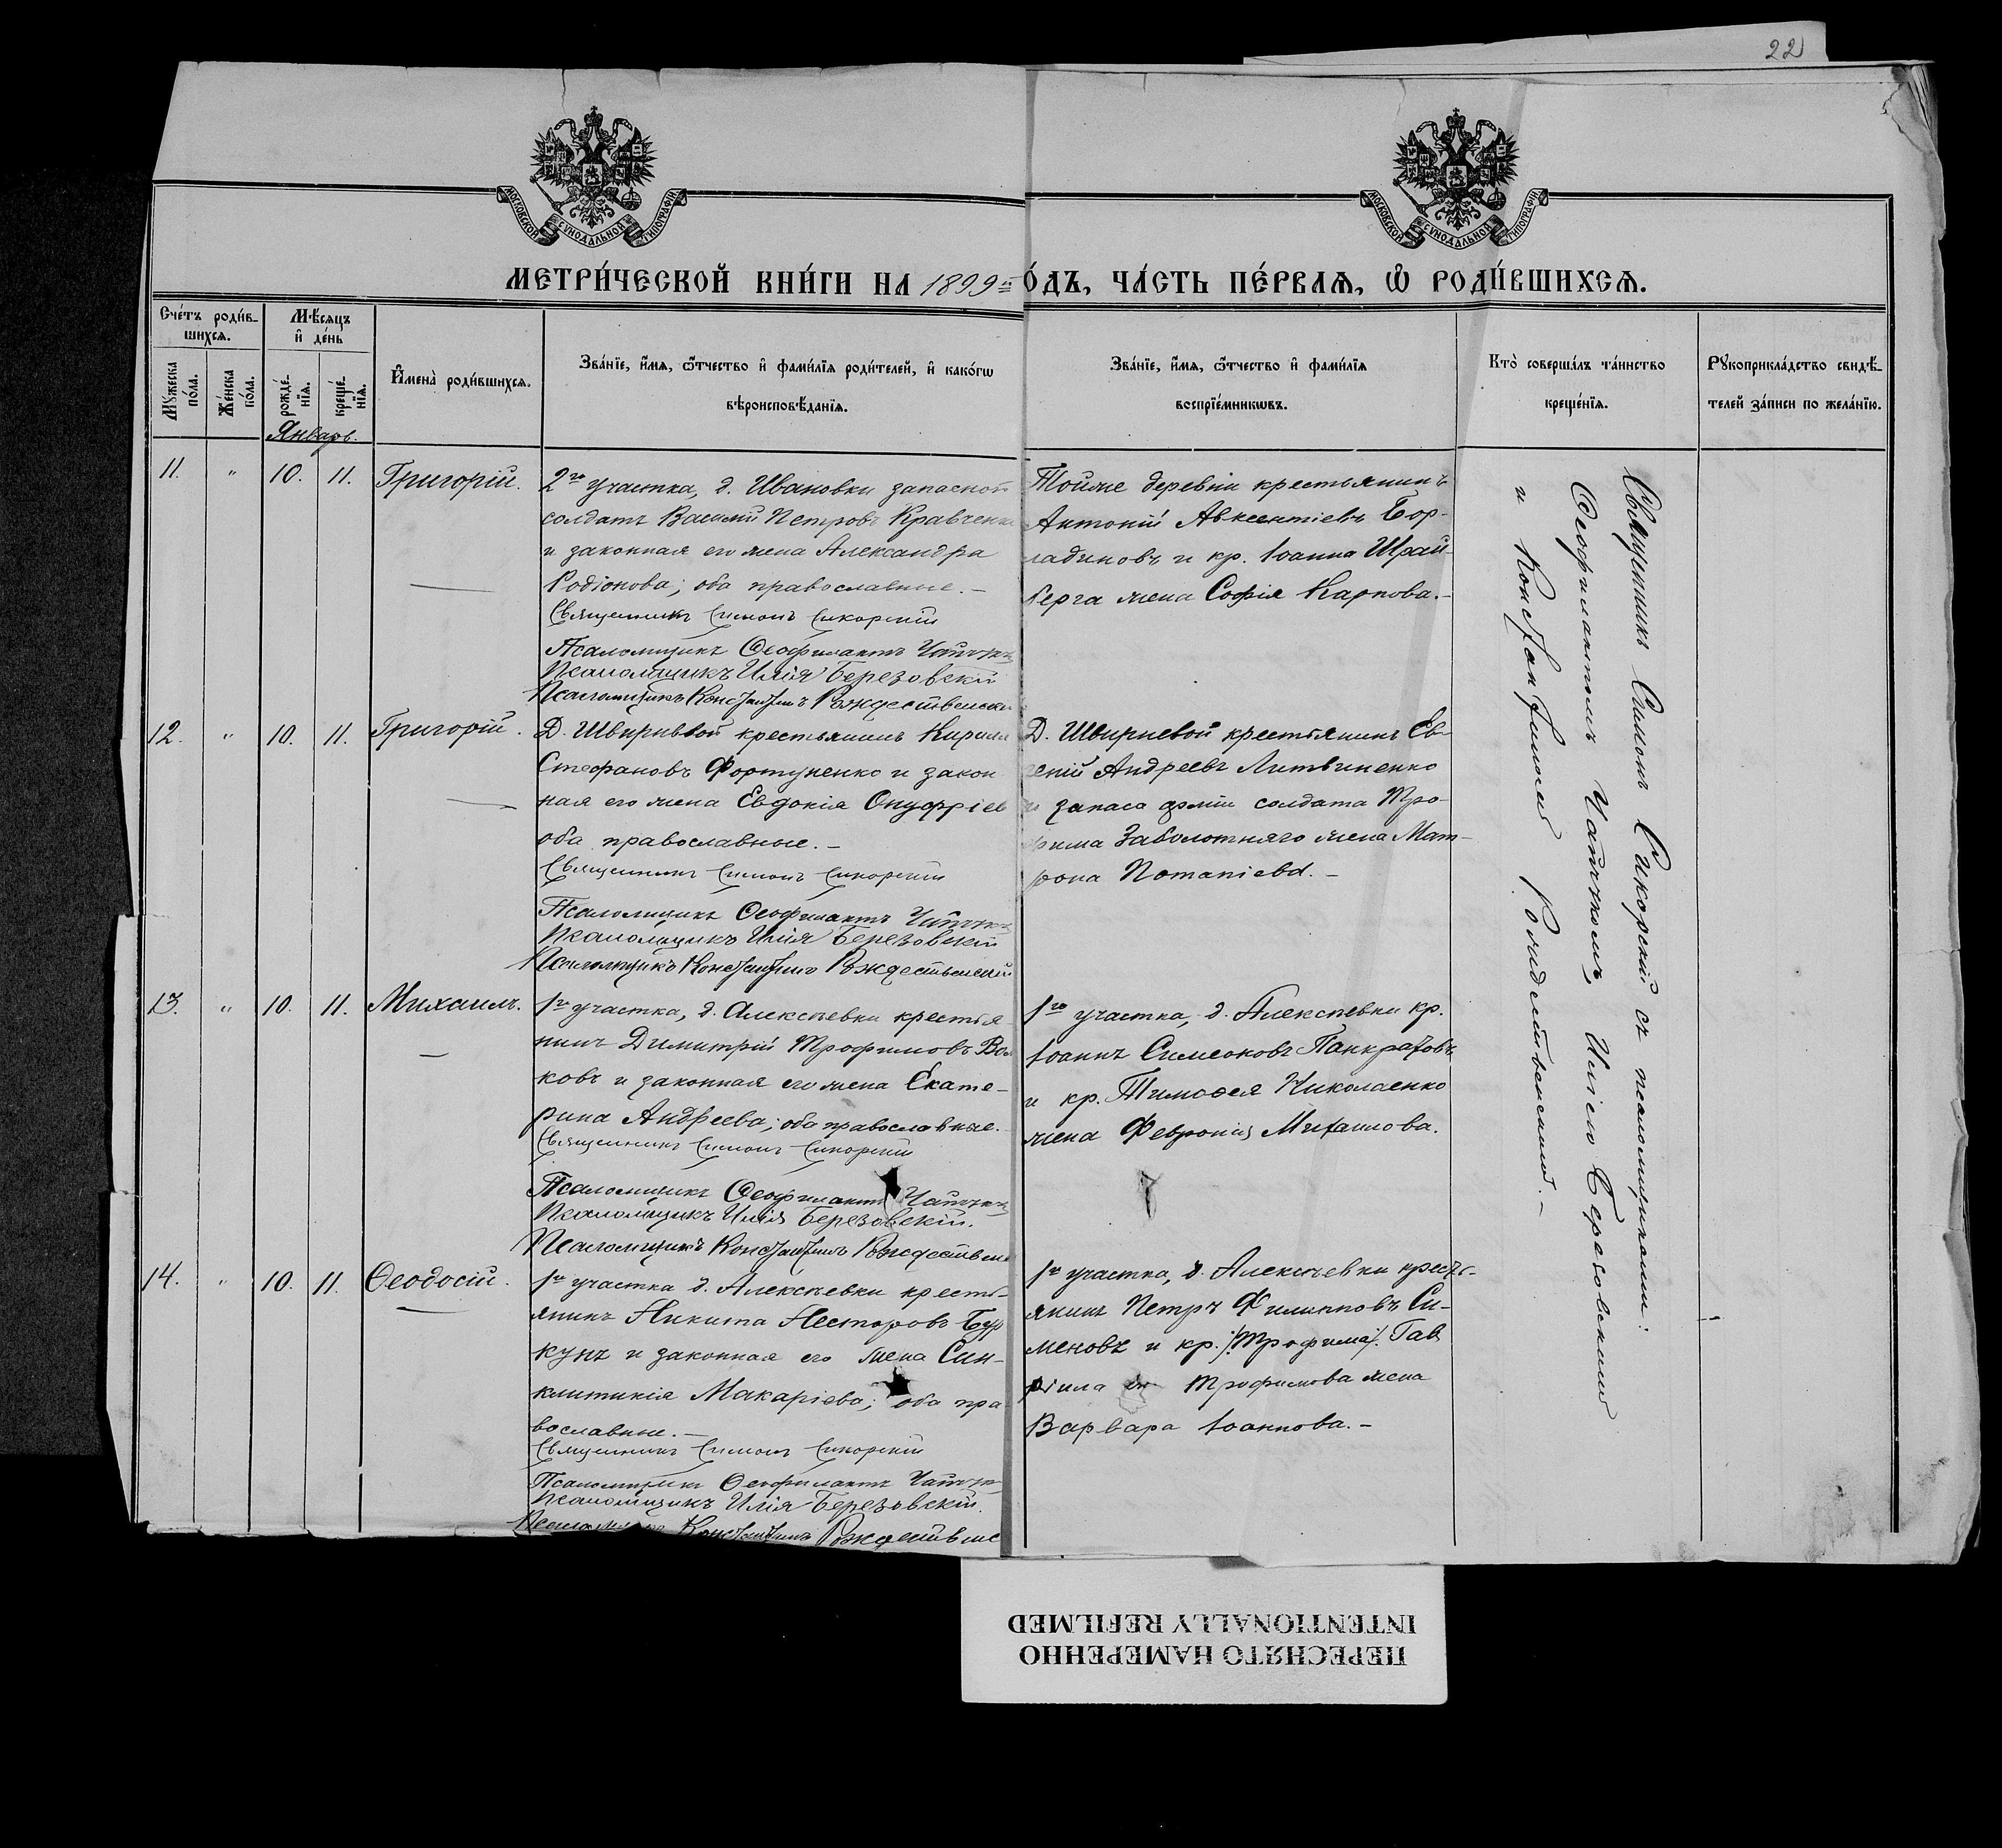 22
МОСКОВСКОЙ СѴНОДАЛЬНОЙ ТИПОГРАФІИ
МОСКОВСКОЙ СѴНОДАЛЬНОЙ ТИПОГРАФІИ
МЕТРИ́ЧЕСКОЙ КНИ́ГИ НА 1899й О́ДЪ, ЧА́СТЬ ПЕ́РВАѦ, Ѡ҆ РОДИ́ВШИХСѦ.
Сче́тъ роди́в-
шихсѧ.
Мѣ́сѧцъ
и҆ де́нь
Мꙋ́жеска по́ла.
Же́нска по́ла.
рожде́-нїѧ.
креще́-нїѧ.
И҆мена̀ роди́вшихсѧ.
Зва́нїе, и҆́мѧ, ѻ҆́тчество и҆ фами́лїѧ роди́телей, и҆ како́гѡ
вѣроисповѣ́данїѧ.
Зва́нїе, и҆́мѧ, ѻ҆́тчество и҆ фами́лїѧ
воспрїе́мникѡвъ.
Кто̀ соверша́лъ та́инство
креще́нїѧ.
Рꙋкоприкла́дство свидѣ́-
телей за́писи по жела́нїю.
Январь.
11. " 10. 11. Григорій.
2го участка, д. Ивановки запасной
солдатъ Василій Петровъ Кравченко
и законная его жена Александра
Родіонова; оба православные. -
Священникъ Симонъ Сикорскій
Псаломщикъ Ѳеофилактъ
Псаломщикъ Илія Березовскій
Псаломщикъ Константинъ Рождественск
Тойже деревни крестьянинъ
Антоній Авксентіевъ Бор-
ладиновъ и кр. Іоанна Шрай-
берга жена Софія Карпова.-
12. " 10. 11. Григорій.
Д. Швыревой крестьянинъ Кирилл
Стефановъ Фортуненко и закон
ная его жена Евдокія Онуфріев
оба православные. -
Священникъ Симонъ Сикорскій
Псаломщикъ Ѳеофилактъ
Псаломщикъ Илія Березовскій
Псаломщикъ Константинъ Рождественскій
Д. Швыревой крестьянинъ Ев-
геній Андреевъ Литвиненко
и запаса арміи солдата Тро-
фима Заболотняго жена Мат-
рона Потапіева. -
13. " 10. 11. Михаилъ.
1го участка, д. Алексѣевки крестья-
нинъ Димитрій Трофимовъ Вол
ковъ и законная его жена Екате-
рина Андреева; оба православные.
Священникъ Симонъ Сикорскій
Псаломщикъ Ѳеофилактъ
Псаломщикъ Илія Березовскій.
Псаломщикъ Константинъ Рождествен
1го участка, д. Алексѣевки кр.
Іоаннъ Симеоновъ Панкратовъ
и кр. Тимоѳея Николаенко
жена Февронія Михаилова.
14. " 10. 11. Ѳеодосій.
1го участка д. Алексѣевки кресть-
янинъ Никита Несторовъ Бур
кунъ и законная его жена Син-
клитикія Макаріева; оба пра
вославные. -
Священникъ Симонъ Сикорскій
Псаломщикъ Ѳеофилактъ
Псаломщикъ Илія Березовскій.
Псаломщикъ Константинъ Рождествен
1го участка, д. Алексѣевки кресть-
янинъ Петръ Филипповъ Си-
меновъ и кр. /:Трофима/: Гав
ріила Трофимова жена
Варвара Іоаннова. -
Священникъ Симонъ Сикорскій съ псаломщиками:
Ѳеофилактомъ Иліею Березовскимъ
и Константиномъ Рождественскимъ. -
ПЕРЕСНЯТО НАМЕРЕННО
INTENTIONALLY REFILMED